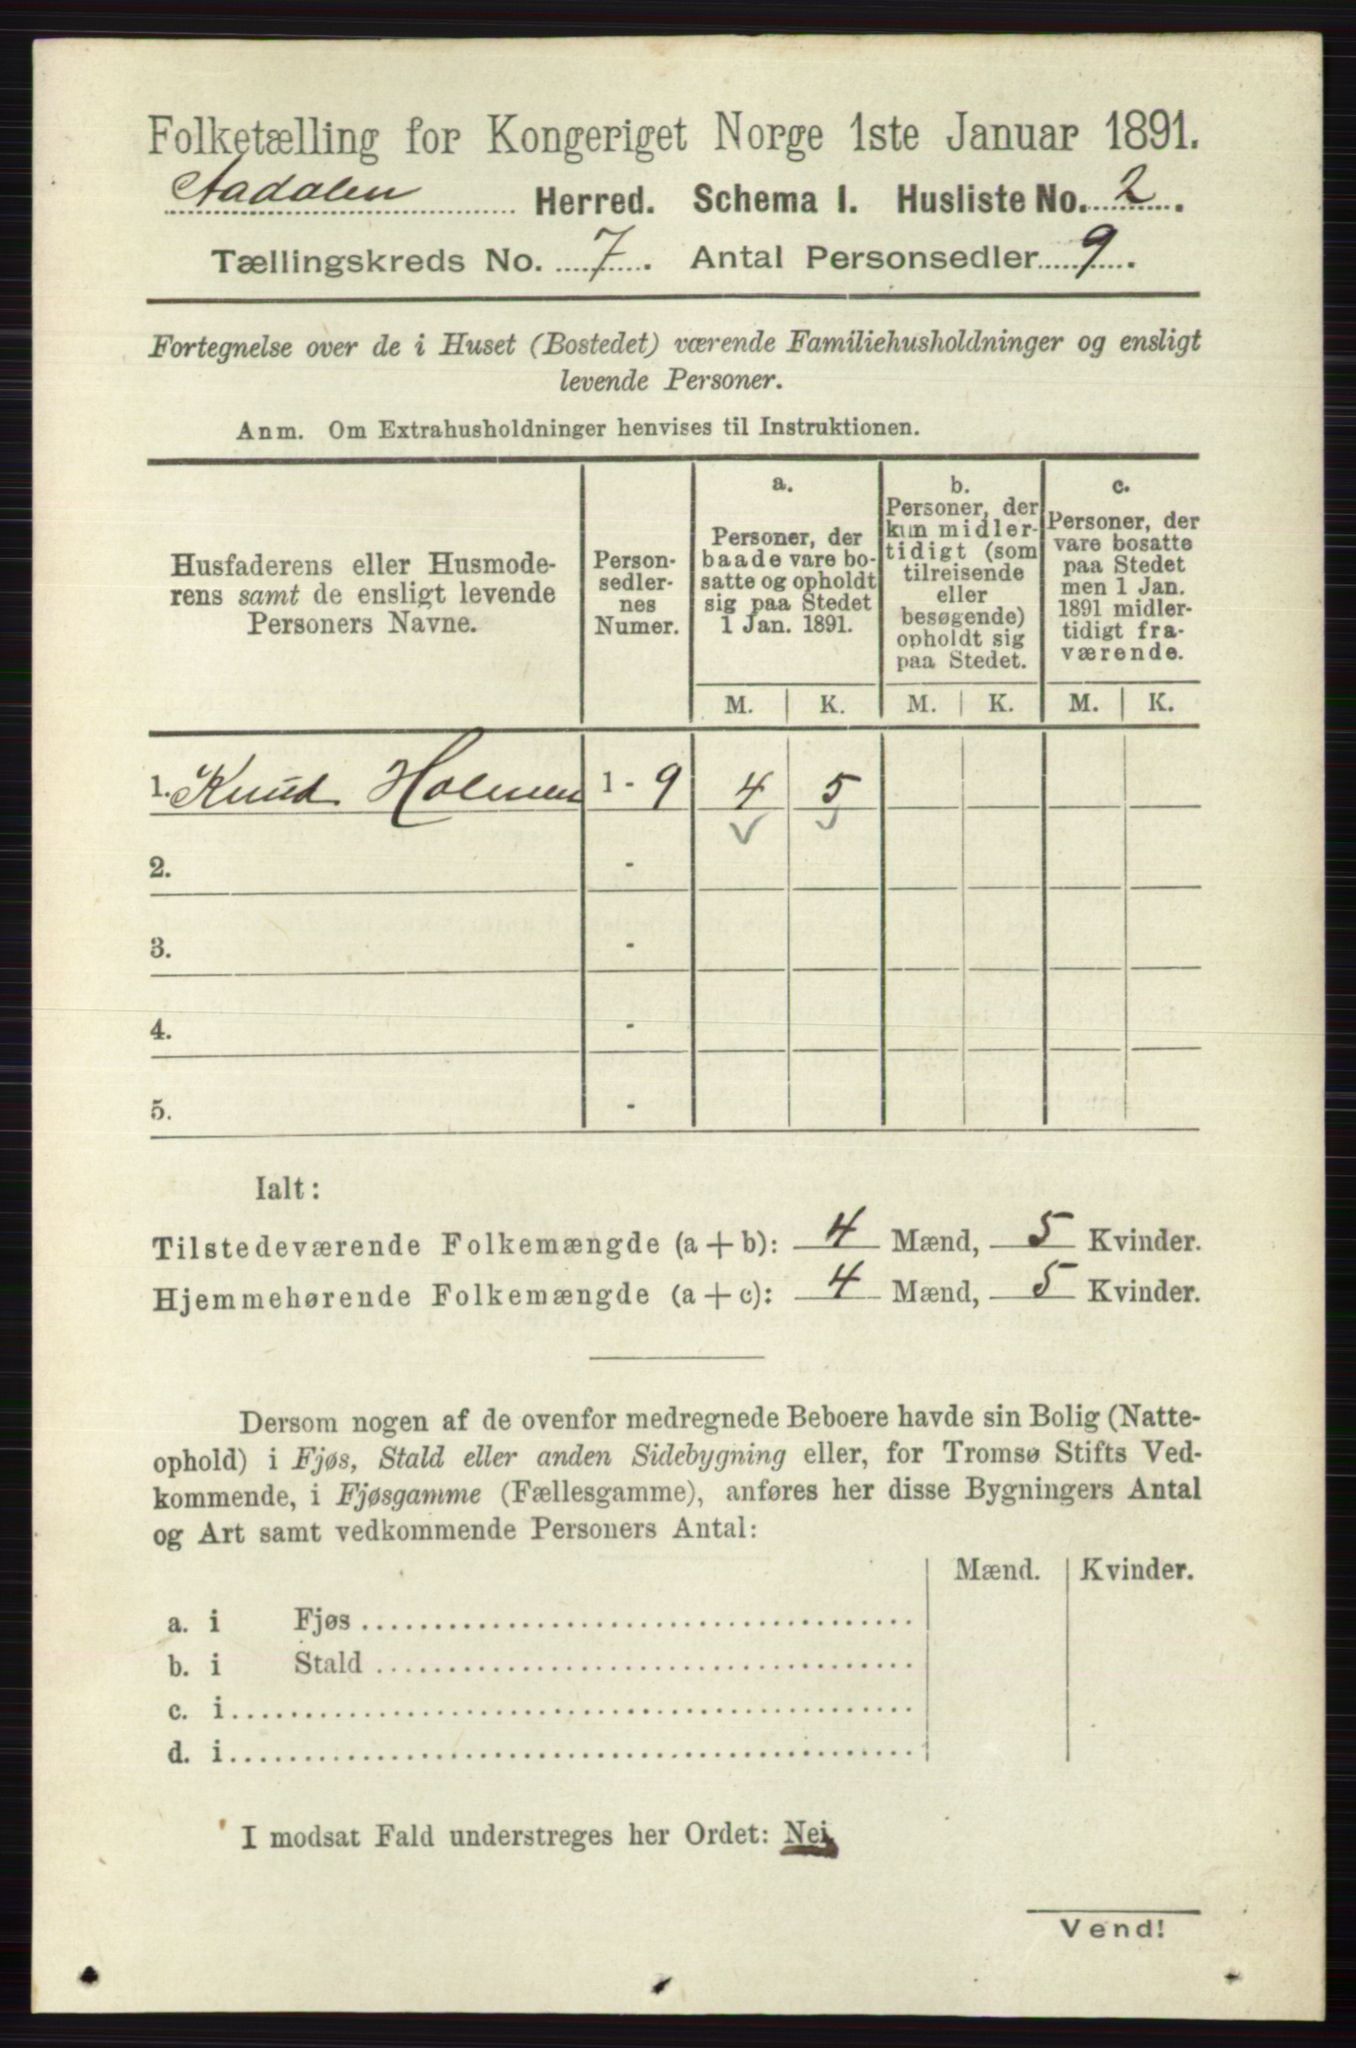 Folketælling for Kongeriget Norge 1ste Januar 1891.
Aadalen Herred. Schema I. Husliste No. 2.
Tællingskreds No. 7. Antal Personsedler 9.
Fortegnelse over de i Huset (Bostedet) værende Familiehusholdninger og ensligt
levende Personer.
Anm. Om Extrahusholdninger henvises til Instruktionen.
Husfaderens eller Husmode-
rens samt de ensligt levende
Personers Navne.
Person-
sedler-
nes
Numer.
a.
Personer, der
baade vare bo-
satte og opholdt
sig paa Stedet
1 Jan. 1891.
b.
Personer, der
kun midler-
tidigt (som
tilreisende
eller
besøgende)
opholdt sig
paa Stedet.
c.
Personer, der
vare bosatte
paa Stedet
men 1 Jan.
1891 midler-
tidigt fra-
værende.
M. K. M. K. M. K.
1. Knud Holmen 1 - 9 4 5
2. -
3. -
4. -
5. -
Ialt:
Tilstedeværende Folkemængde (a + b): 4 Mænd, 5 Kvinder.
Hjemmehørende Folkemængde (a + c): 4 Mænd, 5 Kvinder.
Dersom nogen af de ovenfor medregnede Beboere havde sin Bolig (Natte-
ophold) i Fjøs, Stald eller anden Sidebygning eller, for Tromsø Stifts Ved-
kommende, i Fjøsgamme (Fællesgamme), anføres her disse Bygningers Antal
og Art samt vedkommende Personers Antal:
Mænd. Kvinder.
a. i Fjøs
b. i Stald
c. i
d. i
I modsat Fald understreges her Ordet: Nei.
Vend!